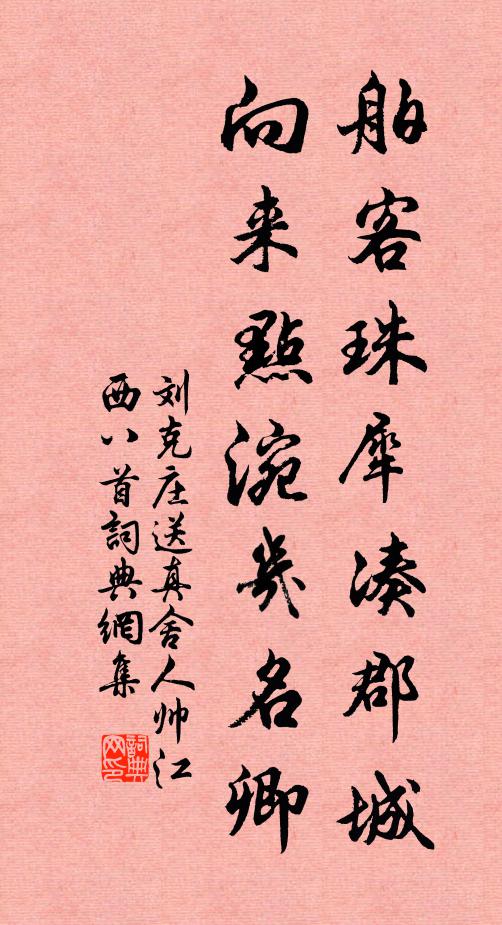 舶客珠犀凑郡城
向来點涴幾名卿
刘克庄送真舍人帅江
西八首詞典網集
詞典网印